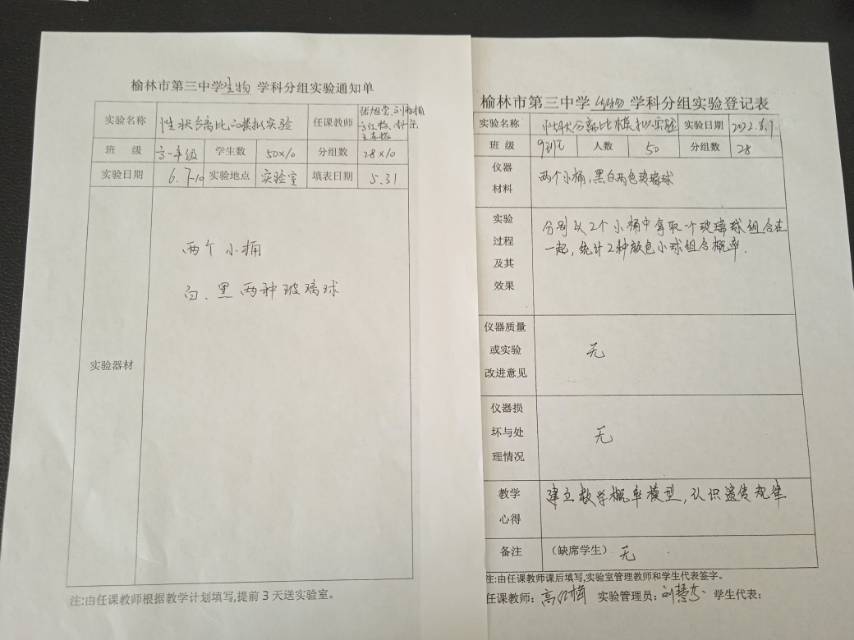 榆林市第三中学生物 学科分组实验通知单
实验名称 性状分离比的模拟实验 任课教师
班 级 高一年级 学生数 50×10 分组数 28×10
实验日期 6.7-10 实验地点 实验室 填表日期 5.31
两个小桶
白、黑两种玻璃球
实验器材
注:由任课教师根据教学计划填写,提前3天送实验室。
榆林市第三中学生物学科分组实验登记表
实验名称 性状分离比模拟实验 实验日期 2022.6.9
班 级 人数 50 分组数 28
仪器
材料
两个小桶,黑白两色玻璃球
实验
过程
及其
效果
分别从2个小桶中拿取一个玻璃球组合在
一起,统计2种颜色小球组合概率.
仪器质量
或实验
改进意见
无
仪器损
坏与处
理情况
无
教学
心得
建立数学概率模型,认识遗传规律
备注 (缺席学生) 无
注:由任课教师课后填写,实验室管理教师和学生代表签字。
任课教师: 实验管理员: 学生代表: